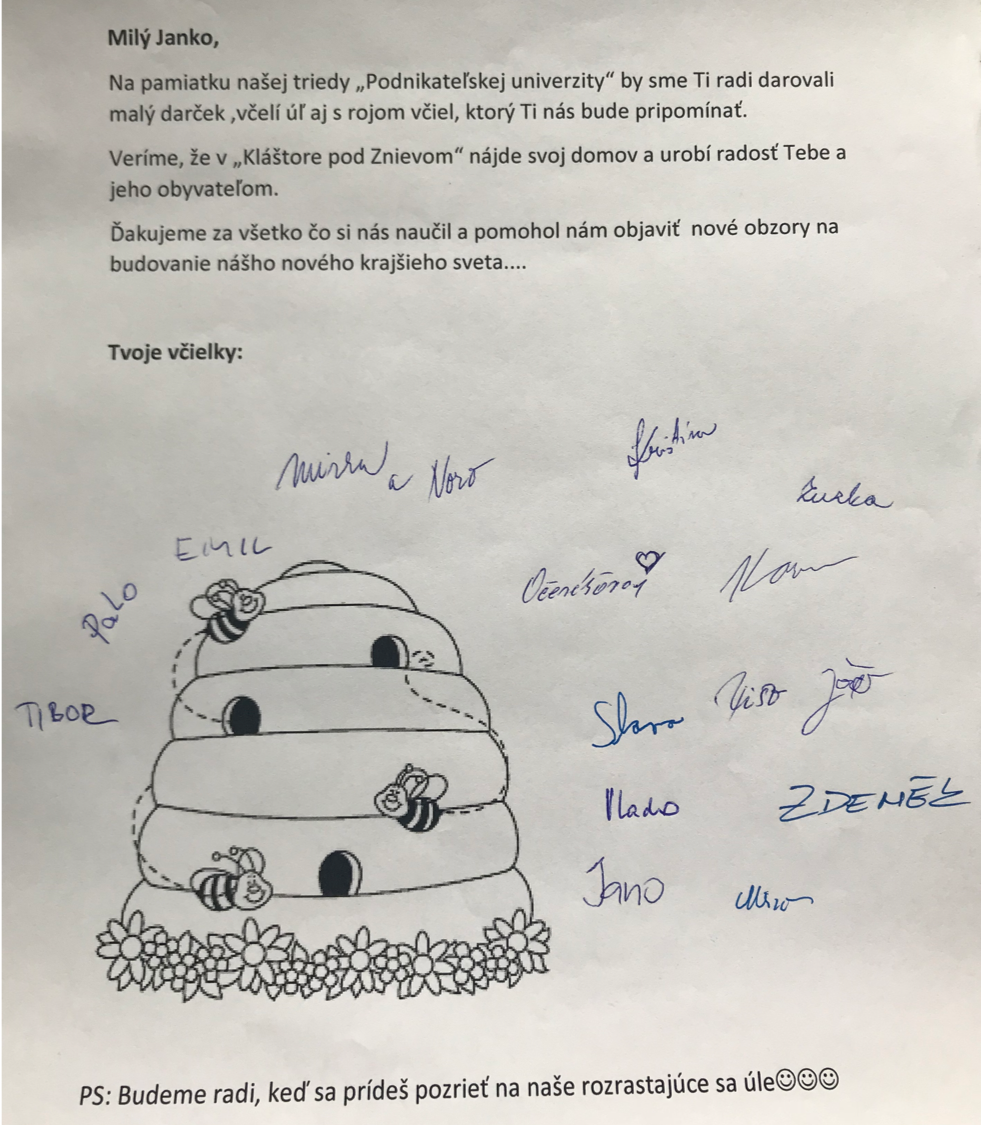 Milý Janko,
Na pamiatku našej triedy „Podnikateľskej univerzity“ by sme Ti radi darovali
malý darček ,včelí úľ aj s rojom včiel, ktorý Ti nás bude pripomínať.
Veríme, že v „Kláštore pod Znievom“ nájde svoj domov a urobí radosť Tebe a
jeho obyvateľom.
Ďakujeme za všetko čo si nás naučil a pomohol nám objaviť  nové obzory na
budovanie nášho nového krajšieho sveta....
Tvoje včielky:
a Noro
Zuzka
EMIL
PALO
TIBOR
Vlado
ZDENĚK
Jano
Miro
PS: Budeme radi, keď sa prídeš pozrieť na naše rozrastajúce sa úle☺☺☺